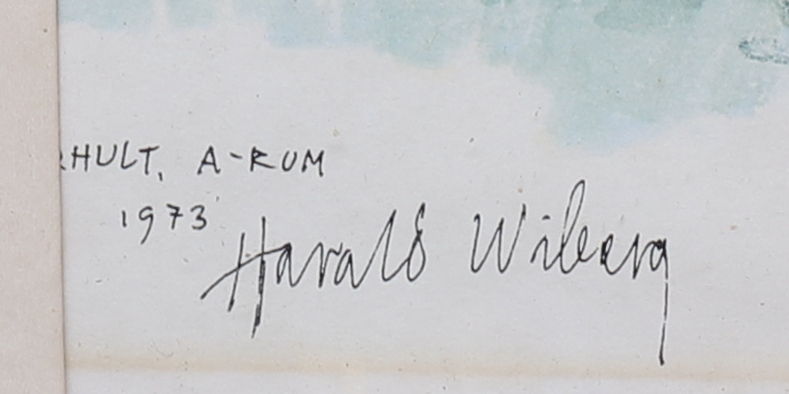 RHULT, A-RUM
1973
Harald Wiberg